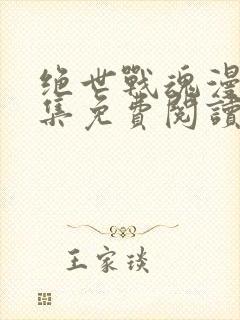 绝世戰魂漫
集免費閱讀
王家琰